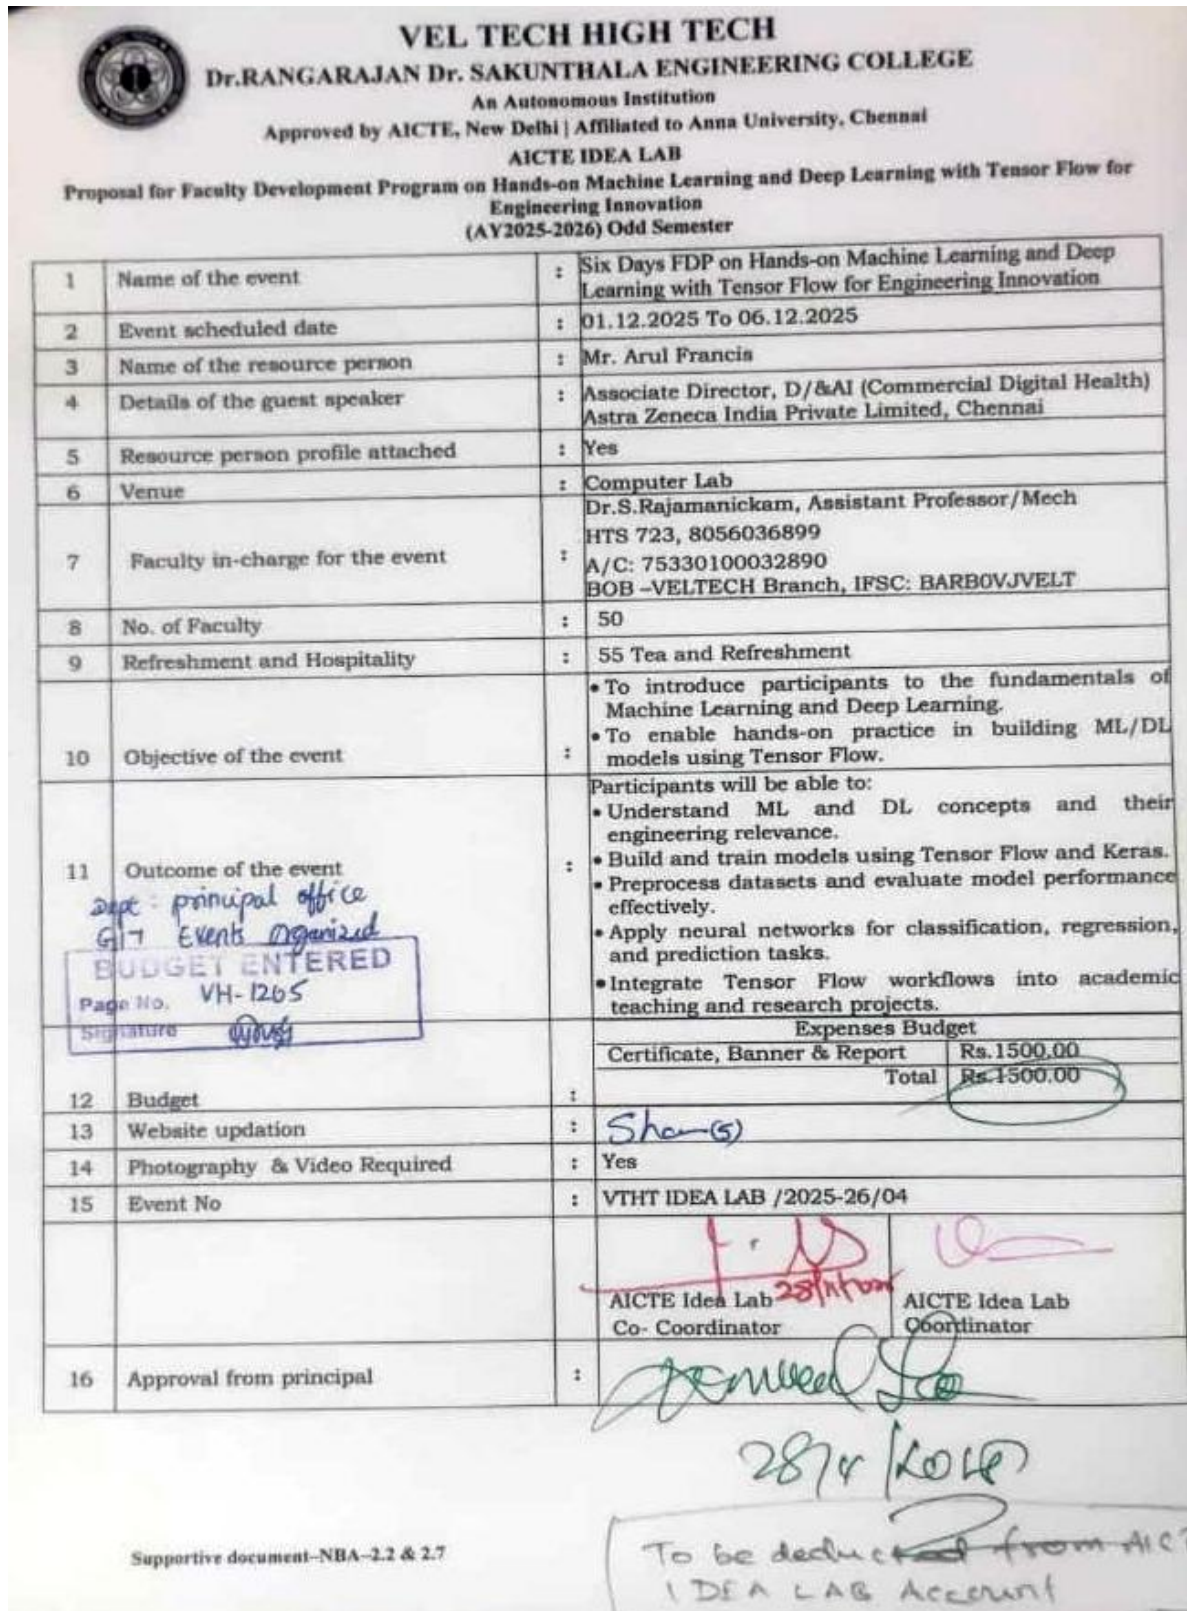 VEL TECH HIGH TECH
Dr.RANGARAJAN Dr. SAKUNTHALA ENGINEERING COLLEGE
An Autonomous Institution
Approved by AICTE, New Delhi | Affiliated to Anna University, Chennai
AICTE IDEA LAB
Proposal for Faculty Development Program on Hands-on Machine Learning and Deep Learning with Tensor Flow for
Engineering Innovation
(AY2025-2026) Odd Semester
1 Name of the event : Six Days FDP on Hands-on Machine Learning and Deep
Learning with Tensor Flow for Engineering Innovation
2 Event scheduled date : 01.12.2025 To 06.12.2025
3 Name of the resource person : Mr. Arul Francis
4 Details of the guest speaker : Associate Director, D/&AI (Commercial Digital Health)
Astra Zeneca India Private Limited, Chennai
5 Resource person profile attached : Yes
6 Venue : Computer Lab
7 Faculty in-charge for the event : Dr.S.Rajamanickam, Assistant Professor/Mech
HTS 723, 8056036899
A/C: 75330100032890
BOB –VELTECH Branch, IFSC: BARB0VJVELT
8 No. of Faculty : 50
9 Refreshment and Hospitality : 55 Tea and Refreshment
10 Objective of the event :
• To introduce participants to the fundamentals of
Machine Learning and Deep Learning.
• To enable hands-on practice in building ML/DL
models using Tensor Flow.
11 Outcome of the event :
Participants will be able to:
• Understand ML and DL concepts and their
engineering relevance.
• Build and train models using Tensor Flow and Keras.
• Preprocess datasets and evaluate model performance
effectively.
• Apply neural networks for classification, regression,
and prediction tasks.
• Integrate Tensor Flow workflows into academic
teaching and research projects.
Dept : principal office
Events organized
BUDGET ENTERED
Page No. VH-1265
Signature
12 Budget :
Expenses Budget
Certificate, Banner & Report Rs.1500.00
Total Rs.1500.00
13 Website updation :
14 Photography & Video Required : Yes
15 Event No : VTHT IDEA LAB /2025-26/04
AICTE Idea Lab
Co- Coordinator
AICTE Idea Lab
Coordinator
16 Approval from principal :
Supportive document–NBA–2.2 & 2.7
To be deducted from AIC
IDEA LAB Account